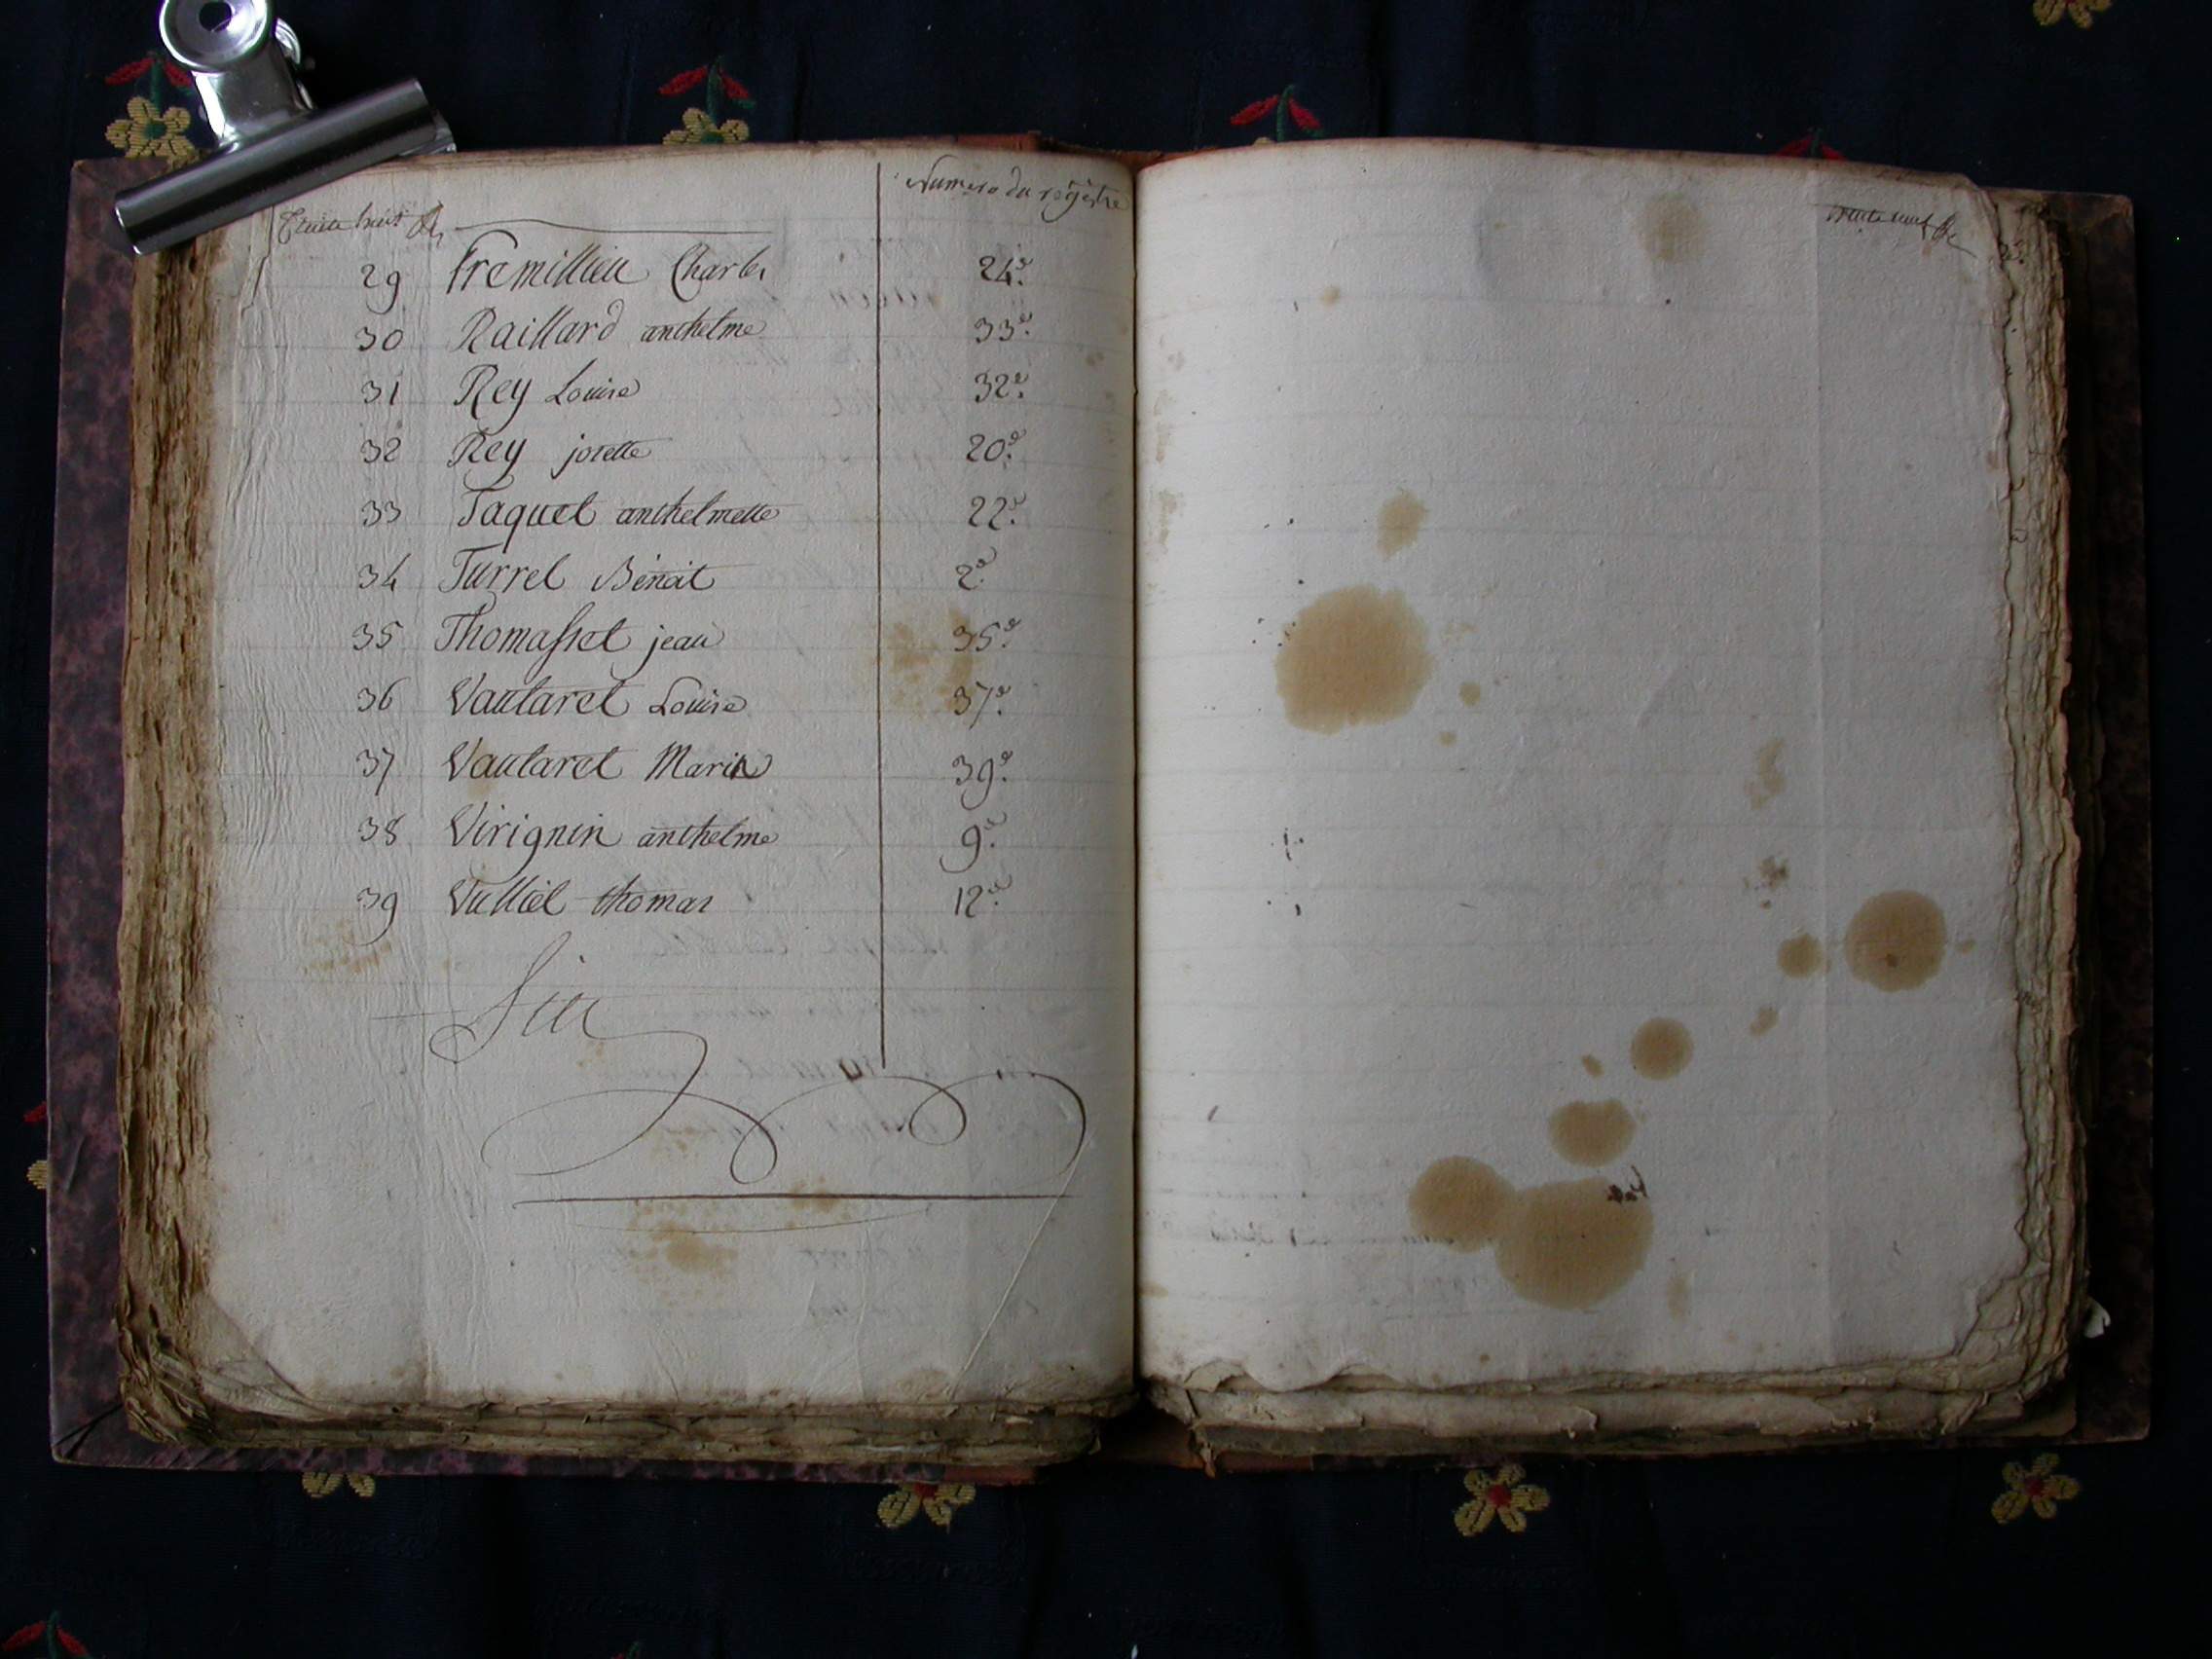 Numero du registre
Trente huit
29 Fremillieu Charles 24e.
30 Raillard anthelme 33e.
31 Rey Louise 32e.
32 Rey josette 20e.
33 Taquet anthelmette 22e.
34 Turrel Benoit 2e.
35 Thomasset jean 35e.
36 Vautaret Louise 37e.
37 Vautaret Marie 39e.
38 Virignin anthelme 9e.
39 Vulliel thomas 12e.
Fin
trente neuf